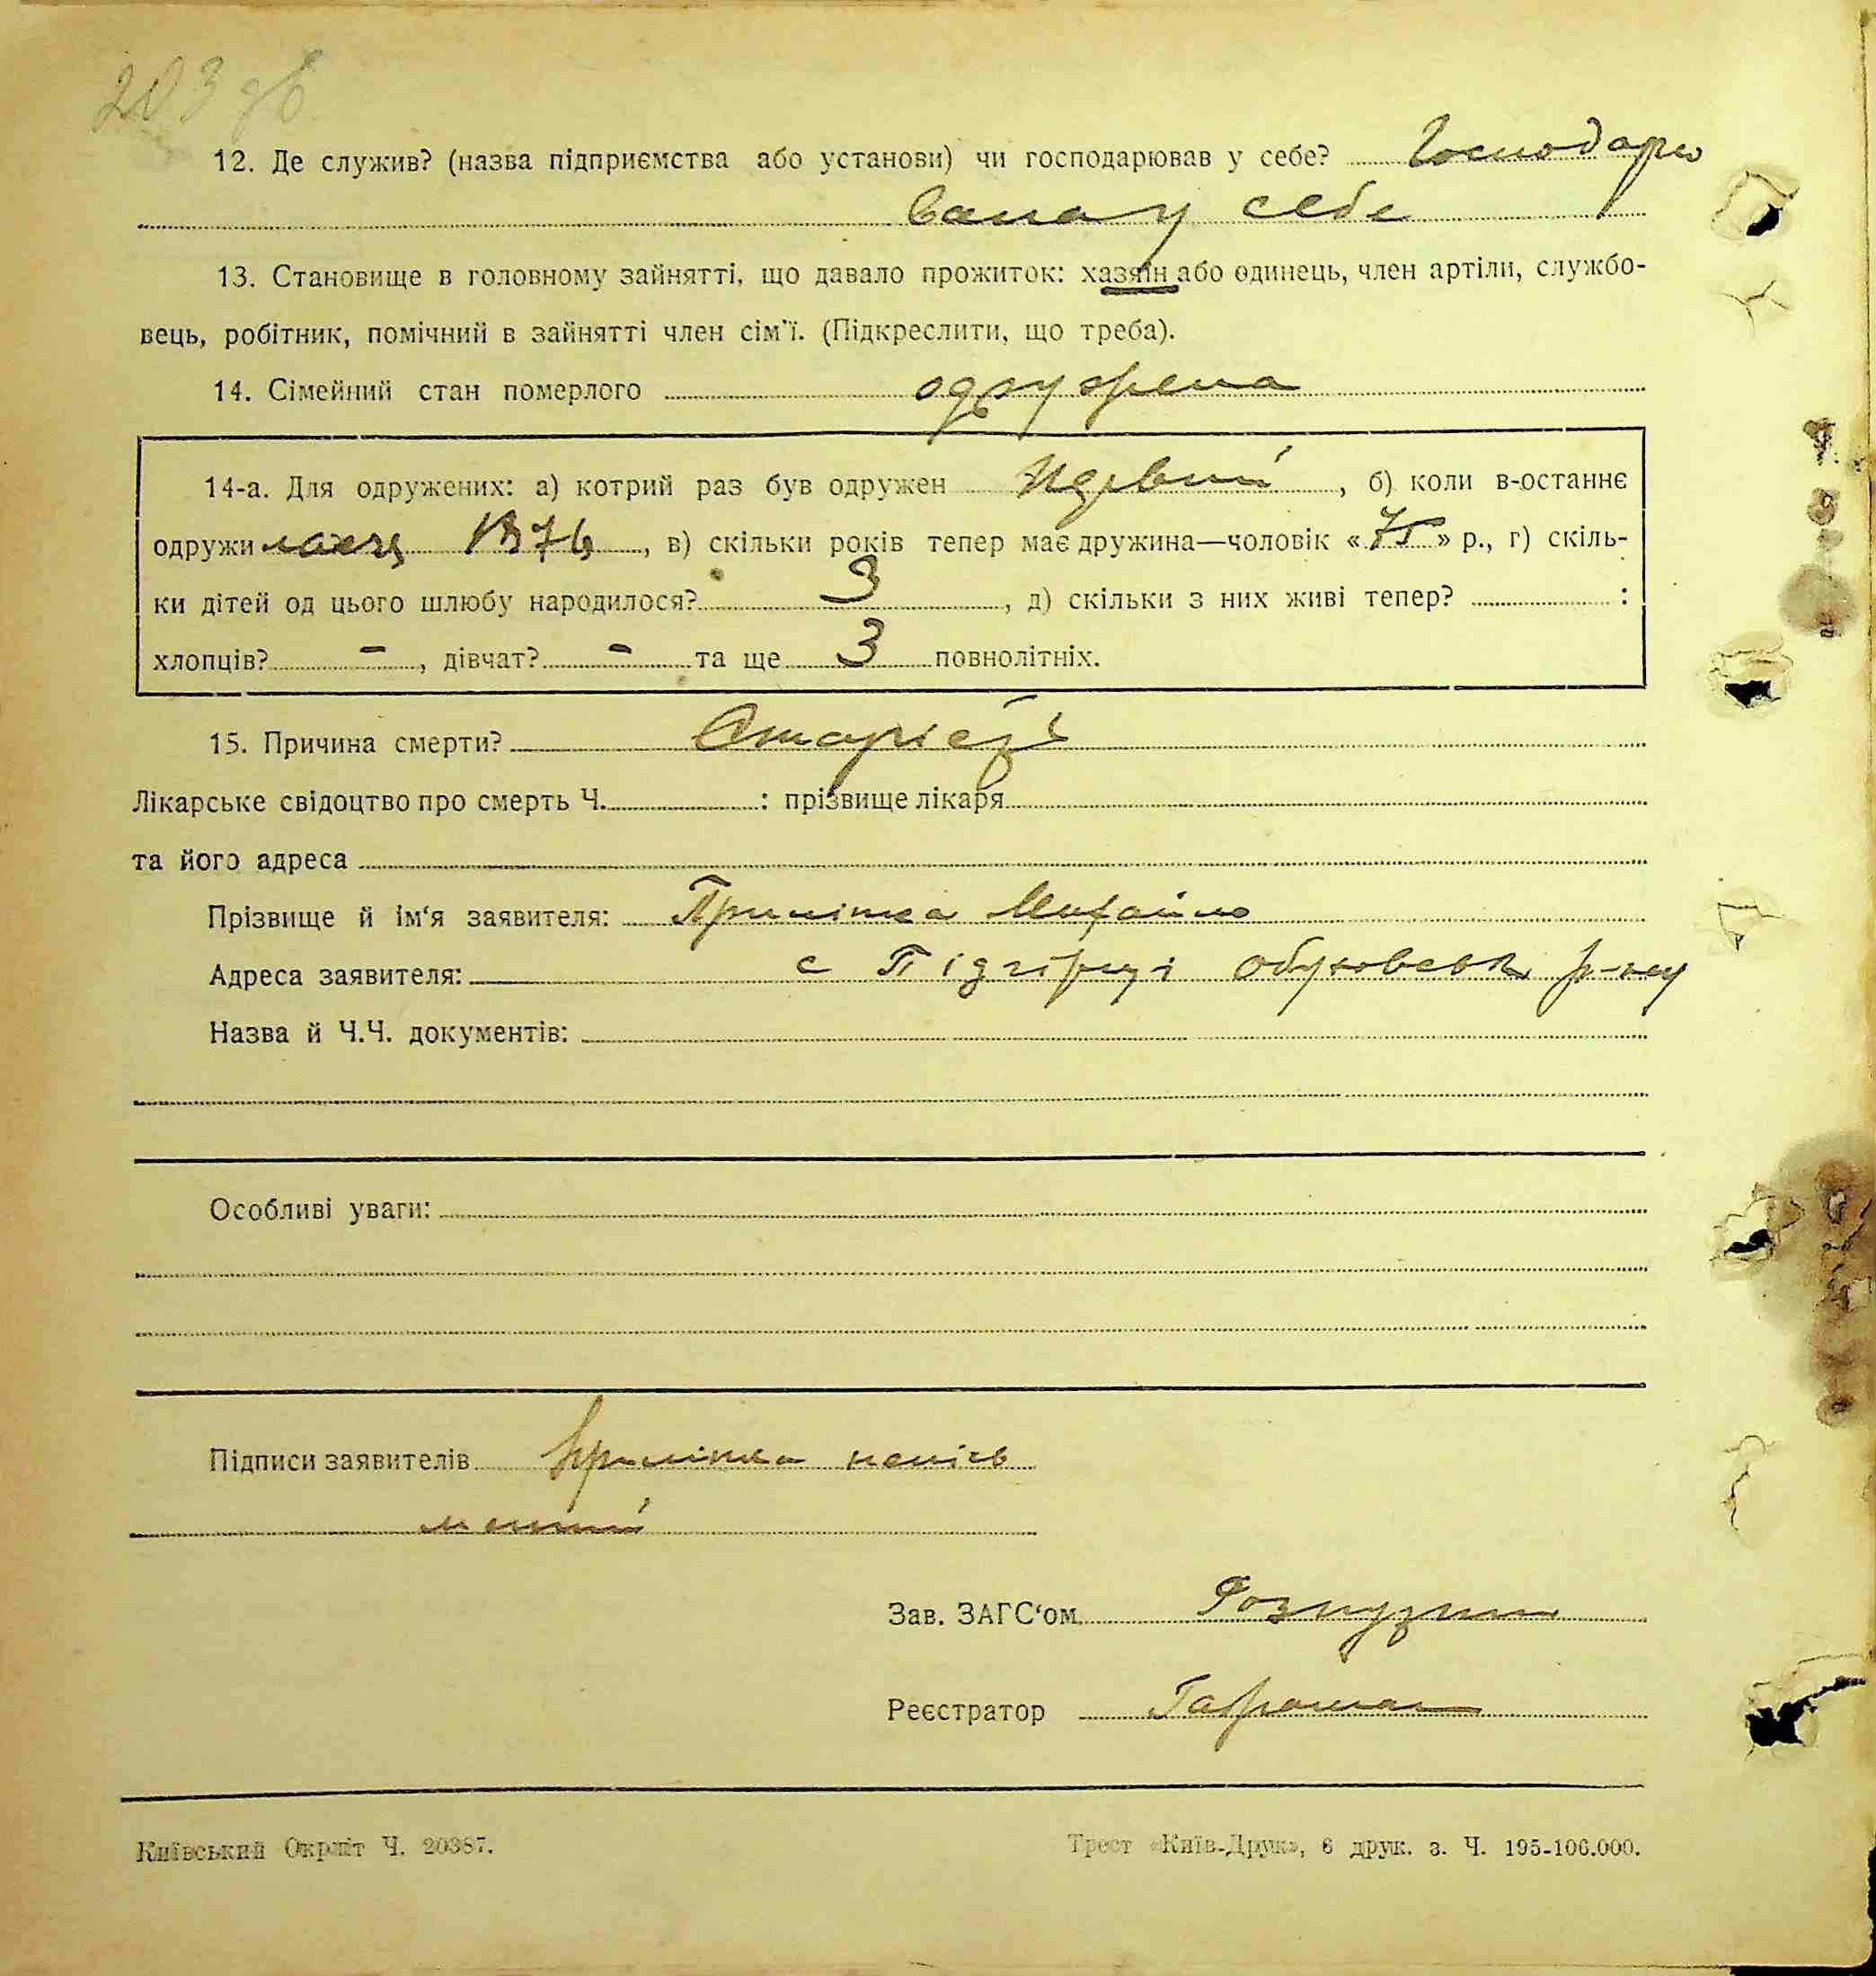 203 зв
12. Де служив? (назва підприємства або установи) чи господарював у себе? Господарю
вала у себе
13. Становище в головному зайнятті, що давало прожиток: хазяїн або одинець, член артіли, службо-
вець, робітник, помічний в зайнятті член сім'ї. (Підкреслити, що треба).
14. Сімейний стан померлого одружена
14-а. Для одружених: а) котрий раз був одружен Первий, б) коли в-останнє
одружилася 1876, в) скільки років тепер має дружина—чоловік «75» р., г) скіль-
ки дітей од цього шлюбу народилося? 3, д) скільки з них живі тепер? :
хлопців? -, дівчат? - та ще 3 повнолітніх.
15. Причина смерти? Старість
Лікарське свідоцтво про смерть Ч. : прізвище лікаря
та його адреса
Прізвище й ім'я заявителя: Примітка Михайло
Адреса заявителя: с Підгірці обуховськ р-ну
Назва й Ч.Ч. документів:
Особливі уваги:
Підписи заявителів Примітка непись
менний
Зав. ЗАГС'ом
Реєстратор
Київський Окрліт Ч. 20387.
Трест «Київ-Друк», 6 друк. з. Ч. 195-106.000.